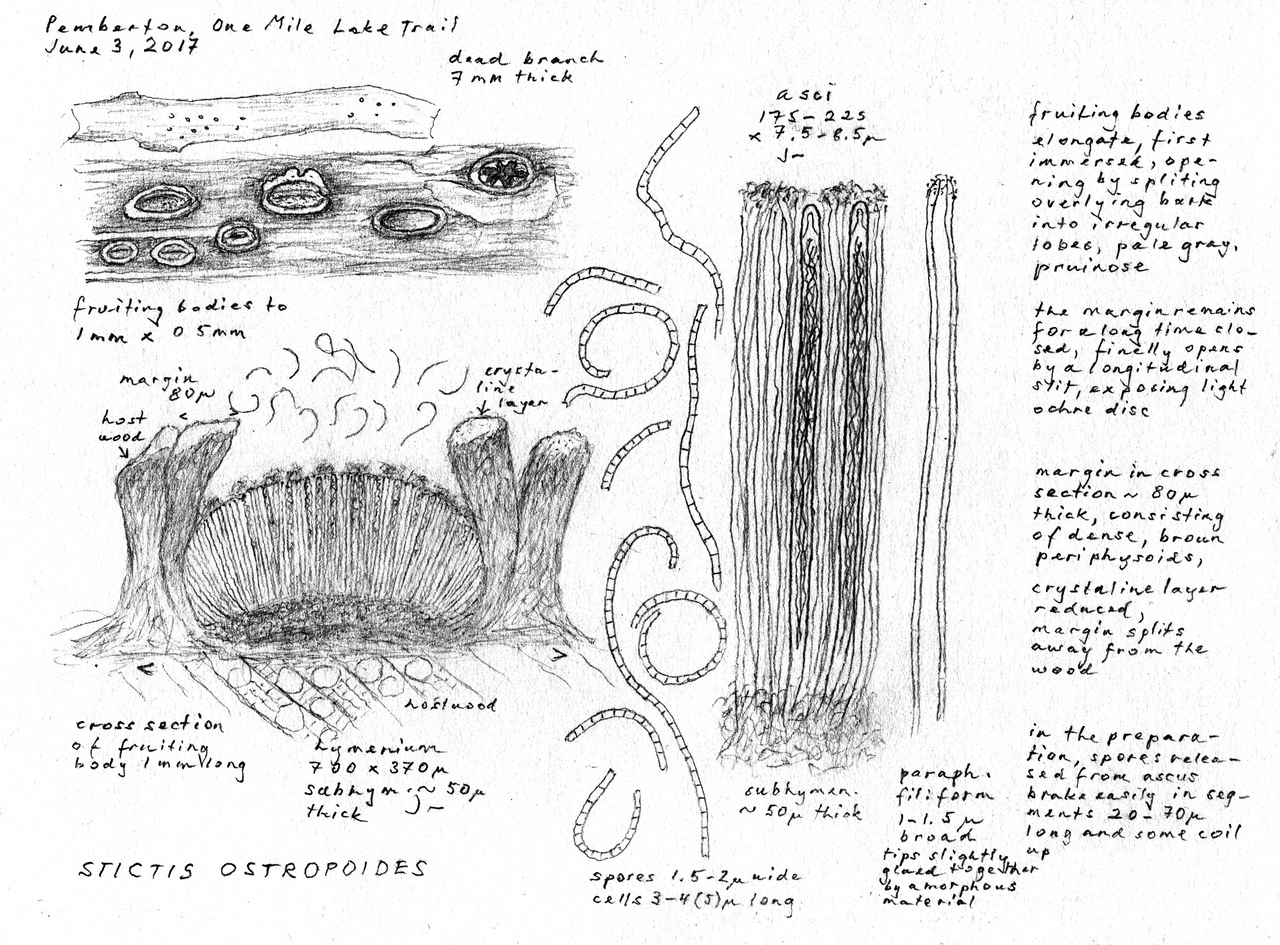 Pemberton, One Mile Lake Trail
June 3, 2017
dead branch
7 mm thick
fruiting bodies to
1mm x 0.5mm
margin
80µ
host
wood
crysta-
line
layer
hostwood
cross section
of fruiting
body 1mm long
hymenium
700 x 370µ
subhym. ~ 50µ
thick J-
STICTIS OSTROPOIDES
asci
175-225
x 7.5-8.5µ
J-
subhymen.
~ 50µ thick
spores 1.5-2µ wide
cells 3-4(5)µ long
paraph.
filiform
1-1.5 µ
broad
tips slightly
glued together
by amorphous
material
fruiting bodies
elongate, first
immersed, ope-
ning by spliting
overlying bark
into irregular
lobes, pale gray,
pruinose
the margin remains
for a long time clo-
sed, finelly opens
by a longitudinal
slit, exposing light
ochre disc
margin in cross
section ~ 80µ
thick, consisting
of dense, brown
periphysoids,
crystaline layer
reduced,
margin splits
away from the
wood
in the prepara-
tion, spores relea-
sed from ascus
brake easily in seg-
ments 20-70µ
long and some coil
up